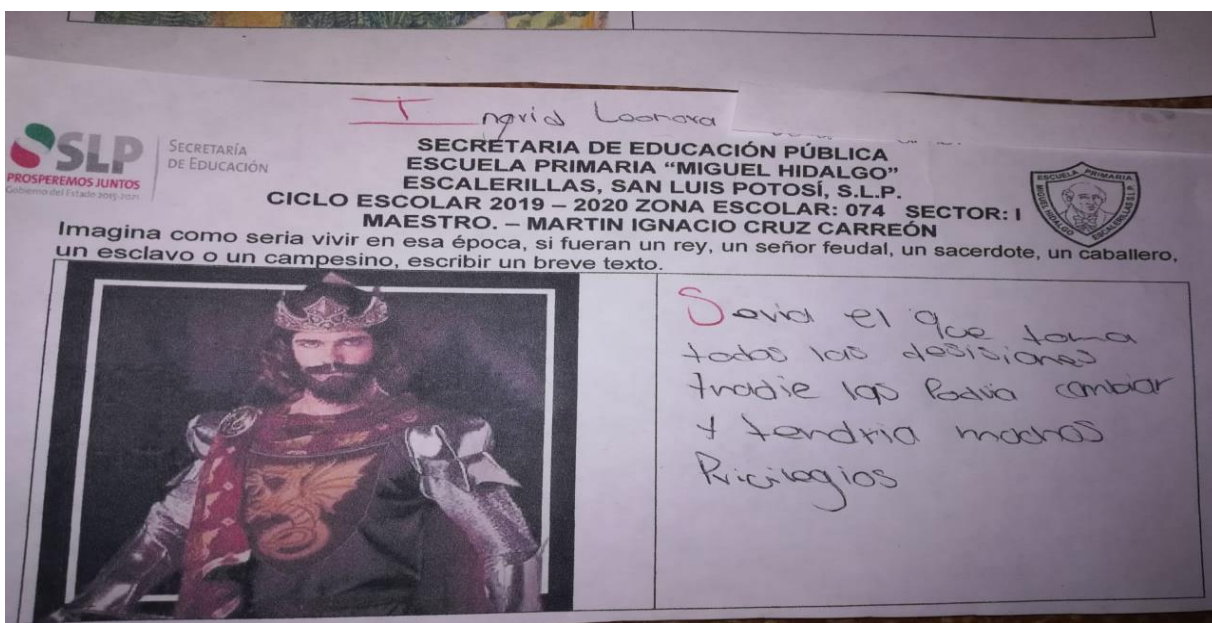 Ingrid Leonora
SSLP
PROSPEREMOS JUNTOS
Gobierno del Estado 2015-2021
SECRETARÍA
DE EDUCACIÓN
SECRETARIA DE EDUCACIÓN PÚBLICA
ESCUELA PRIMARIA “MIGUEL HIDALGO”
ESCALERILLAS, SAN LUIS POTOSÍ, S.L.P.
CICLO ESCOLAR 2019 – 2020 ZONA ESCOLAR: 074 SECTOR: I
MAESTRO. – MARTIN IGNACIO CRUZ CARREÓN
ESCUELA PRIMARIA
MIGUEL HIDALGO
ESCALERILLAS S.L.P.
Imagina como seria vivir en esa época, si fueran un rey, un señor feudal, un sacerdote, un caballero,
un esclavo o un campesino, escribir un breve texto.
Seria el que toma
todas las desisiones
+nadie las Podria cambiar
+ tendria muchos
Pricilegios